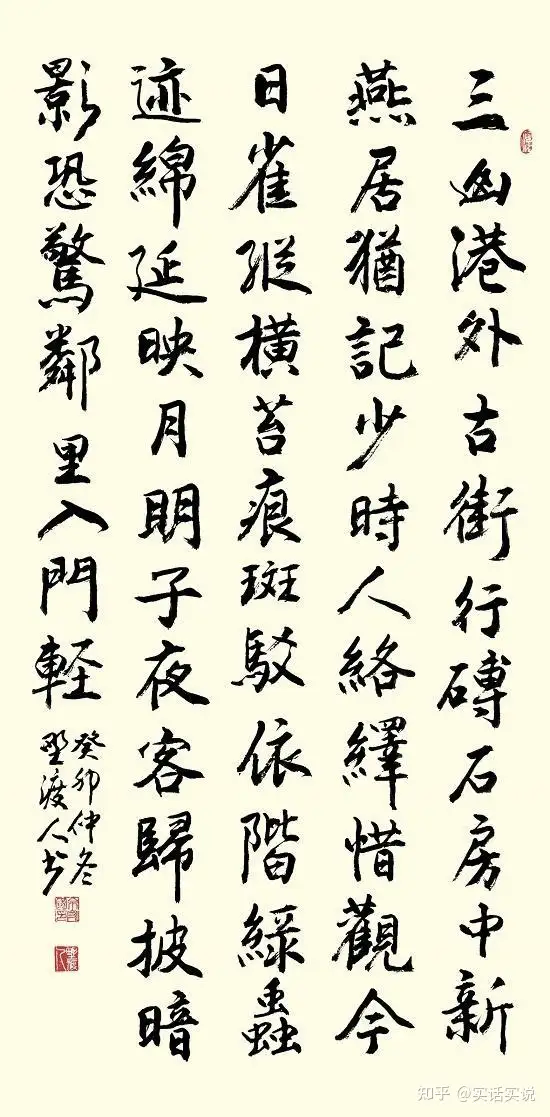 三幽港外古街行磚石房中新
燕居猶記少時人絡繹惜觀今
日雀縱橫苔痕斑駁依階綠蟲
迹綿延映月明子夜客歸披暗
影恐驚鄰里入門軽
癸卯仲冬
野渡人书
知乎 @实话实说